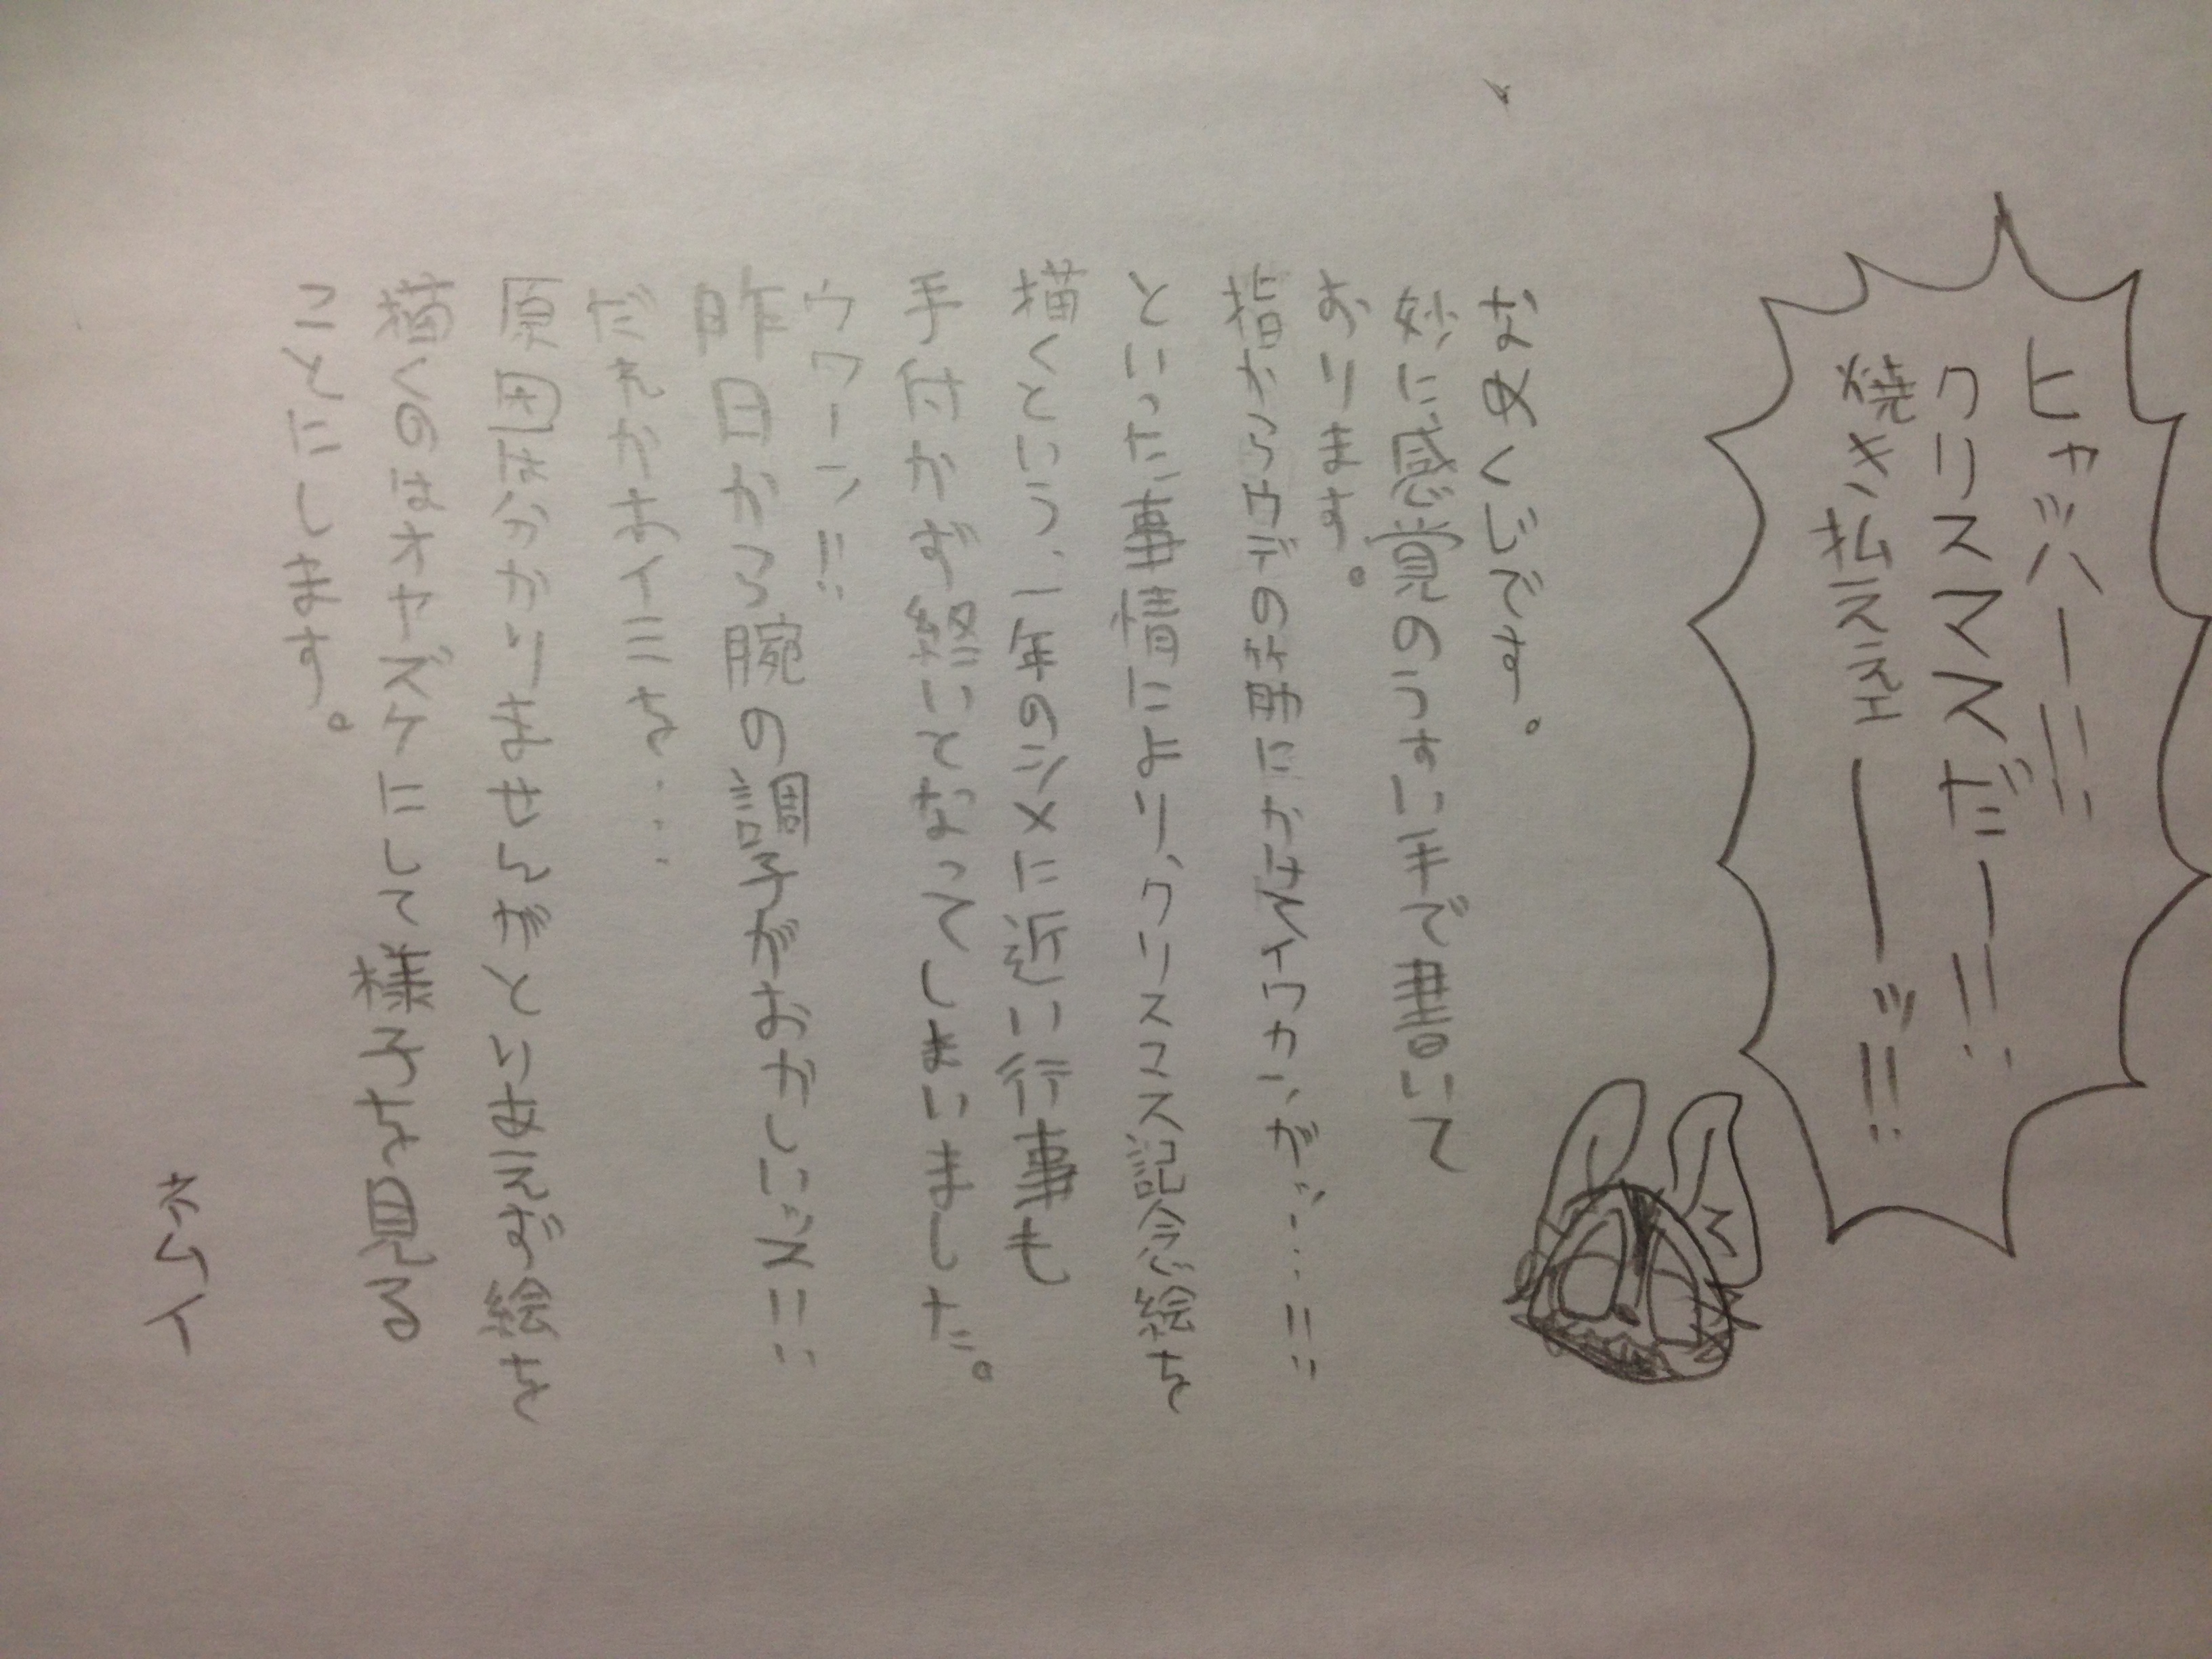 ヒャッハー!!!
クリスマスだー!!
焼き払ええェーーッ!!
なめくじです。
妙に感覚のうすい手で書いて
おります。
指からウデの筋にかけてイワカンが…!!
といった事情により、クリスマス記念絵を
描くという、一年のシメに近い行事も
手付かず終いとなってしまいました。
ウワーン!!
昨日から腕の調子がおかしいッス!!
だれかホイミを…
原因は分かりませんがとりあえず絵を
描くのはオヤスケにして様子を見る
ことにします。
ネムイ